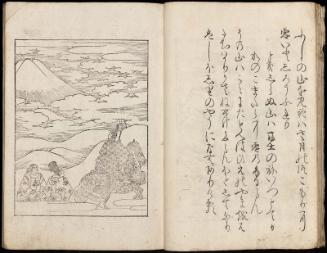 ふしの山を見れは五月のつこもりに
雪いとしろうふれり
時しらぬ山ハ富士のねいつとてか
かのこまたらに雪のふるらん
その山ハこゝにたとへはひえの山を
はたちはかりかさねあけたらんほとしてなり
はしほしりのやうになんありける